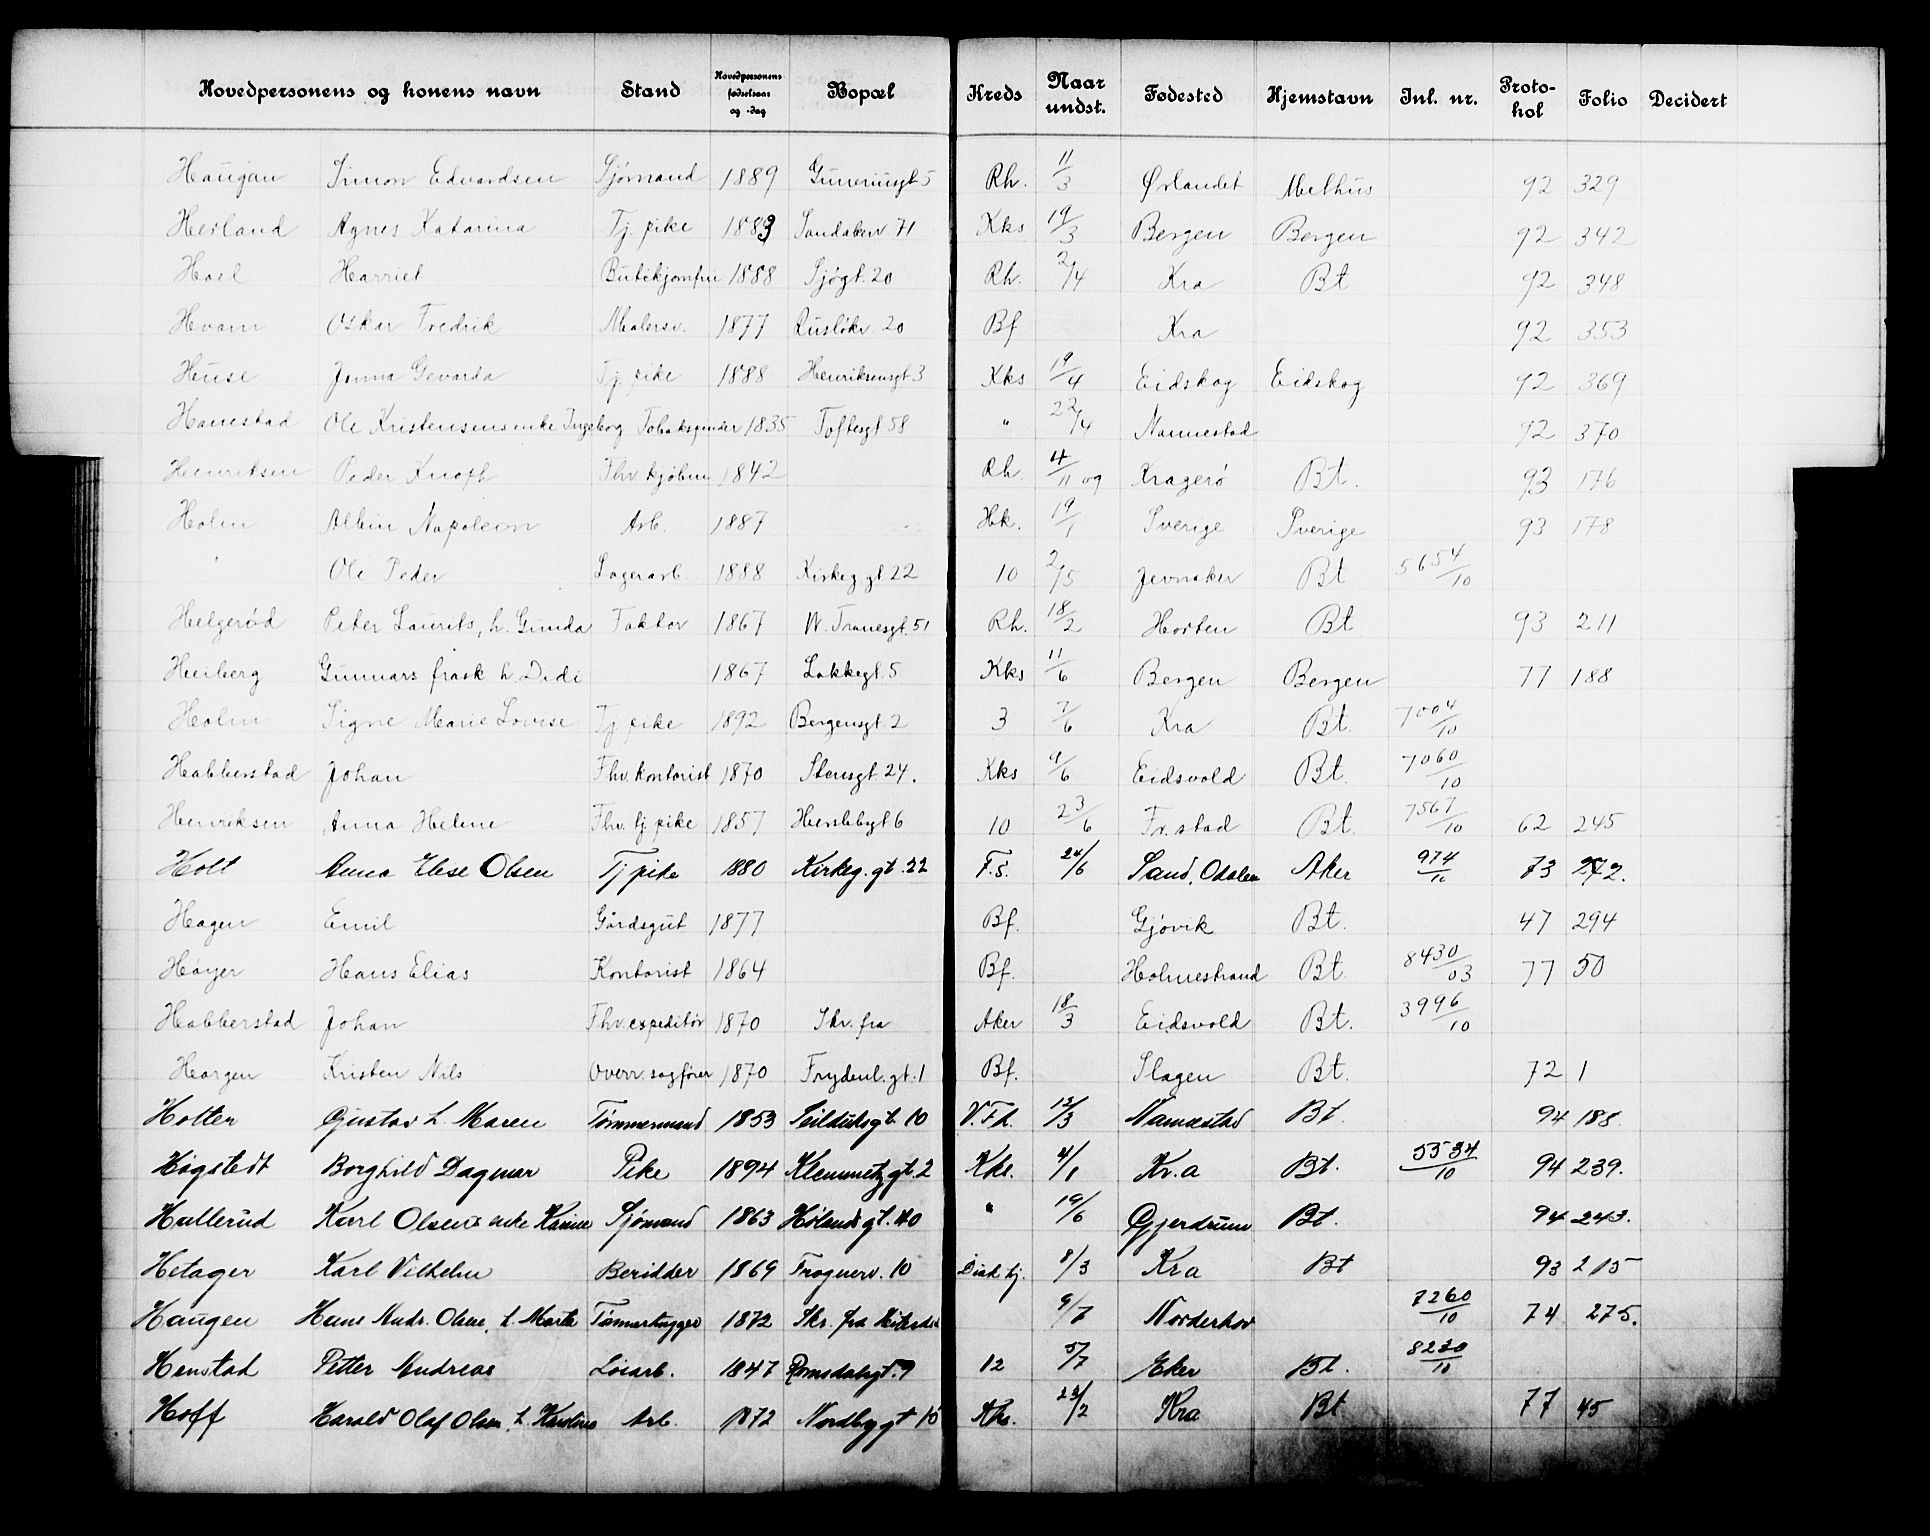 Hovedpersonens og konens navn Stand Hovedpersonens fødselsaar og -dag Bopæl Kreds Naar undst. Fødested Hjemstavn Inl. nr. Protohol Folio Decidert
Haugan Simon Edvardsen Sjømand 1889 5 Rh. 11/3 Ørlandet Melhus 92 329
Herland Agnes Katarina Tj. pike 1883 Sandakerv 71 Kks 19/3 Bergen Bergen 92 342
Hoel Harriet Butikjomfru 1888 Sjøgt. 20 Rh. 2/4 Kra Bt 92 348
Hvam Oskar Fredrik Malersv. 1877 Rusløkv. 20 Bf Kra 92 353
Huse Jenna Gevarda Tj. pike 1888 Henriksensgt 3 Kks 19/4 Eidskog Eidskog 92 369
Hanestad Ole Kristensens enke Ingeborg 1835 Toftesgt 58 " 22/4 Nannestad 92 370
Henriksen Peder Knoph Fhv. kjøbm 1842 Rh. 4/11 og Kragerø Bt. 93 176
Holm Albin Napoleon Arb. 1887 Hk. 19/1 Sverige Sverige 93 178
" Ole Peder Lagerarb. 1888 Kirkeg gt 22 10 2/5 Jevnaker Bt 5654/10
Helgerød Peter Laurits, h. Gunda Faktor 1867 W. Tranesgt. 51 Rh. 18/2 Horten Bt 93 211
Heiberg Gunnars frask h. Didi 1867 Løkkegt. 5 Kks 11/6 Bergen Bergen 77 188
Holm Signe Marie Lovise Tj pike 1892 Bergensgt 2 3 7/6 Kra Bt. 7004/10
Habberstad Johan Fhv. kontorist 1870 Stensgt. 24. Kks 9/6 Eidsvold Bt. 7060/10
Henriksen Anna Helene Fhv. tj. pike 1857 Herslebsgt 6 10 23/6 Fr. stad Bt. 7567/10 62 245
Holt Anna Elise Olsen Tj pike 1880 Kirkeg. gt. 22 F.S. 24/6 Sand, Odalen Aker 974/11 73 272.
Hagen Emil Gårdsgut 1877 Bf. Gjøvik Bt. 47 294
Høyer Hans Elias Kontorist 1864 Bf. Holmestrand Bt. 8430/03 77 50
Habberstad Johan Fhv. expeditør 1870 Skr. fra Aker 18/3 Eidsvold Bt. 3996/10
Horgen Kristen Nils Overr. sagfører 1870 Frydenl. gt. 1 Bf. Slagen Bt. 72 1
Holter Gustav h. Maren Tømmermand 1853 Seilduksgt. 10 V.Fh. 12/3 Nannestad Bt 94 188.
Høgstedt Borghild Dagmar Pike 1894 Klemmetsgt. 2 Kks. 4/1 Kr.a Bt. 5534/10 94 239.
Hullerud Karl Olsens enke Karine Sjømand 1863 Hølandsgt. 40 " 19/6 Gjerdrum Bt. 94 243.
Hetager Karl Vilhelm Beridder 1869 Frognerv. 10 Diak hj. 8/3 Kra Bt 93 215
Haugen Hans Andr. Olsen, h. Marte Tømmerhugger 1872 Skr. fra 9/7 Norderhov 7260/10 74 275.
Henstad Petter Andreas Løsarb. 1847 Romsdalsgt. 9 12 5/7 Eker Bt. 8230/10
Hoff Harald Olaf Olsen, h. Karoline Arb. 1872 Nordbygt 10 Rh. 23/2 Kra Bt 77 45